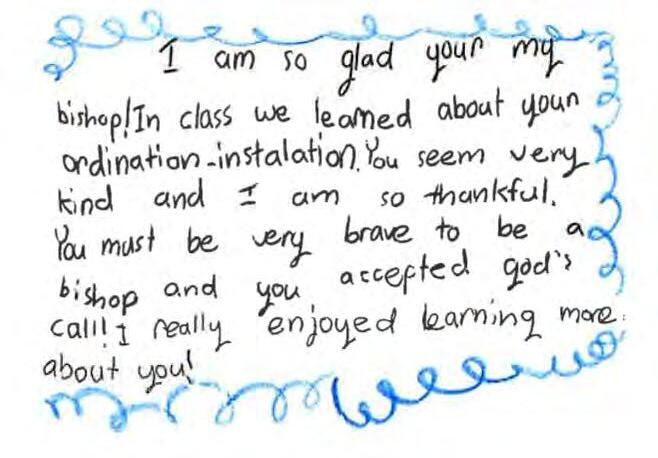 I am so glad your my
bishop! In class we learned about your
ordination-instalation. You seem very
kind and I am so thankful.
You must be very brave to be a
bishop and you accepted god's
call! I really enjoyed learning more
about you!